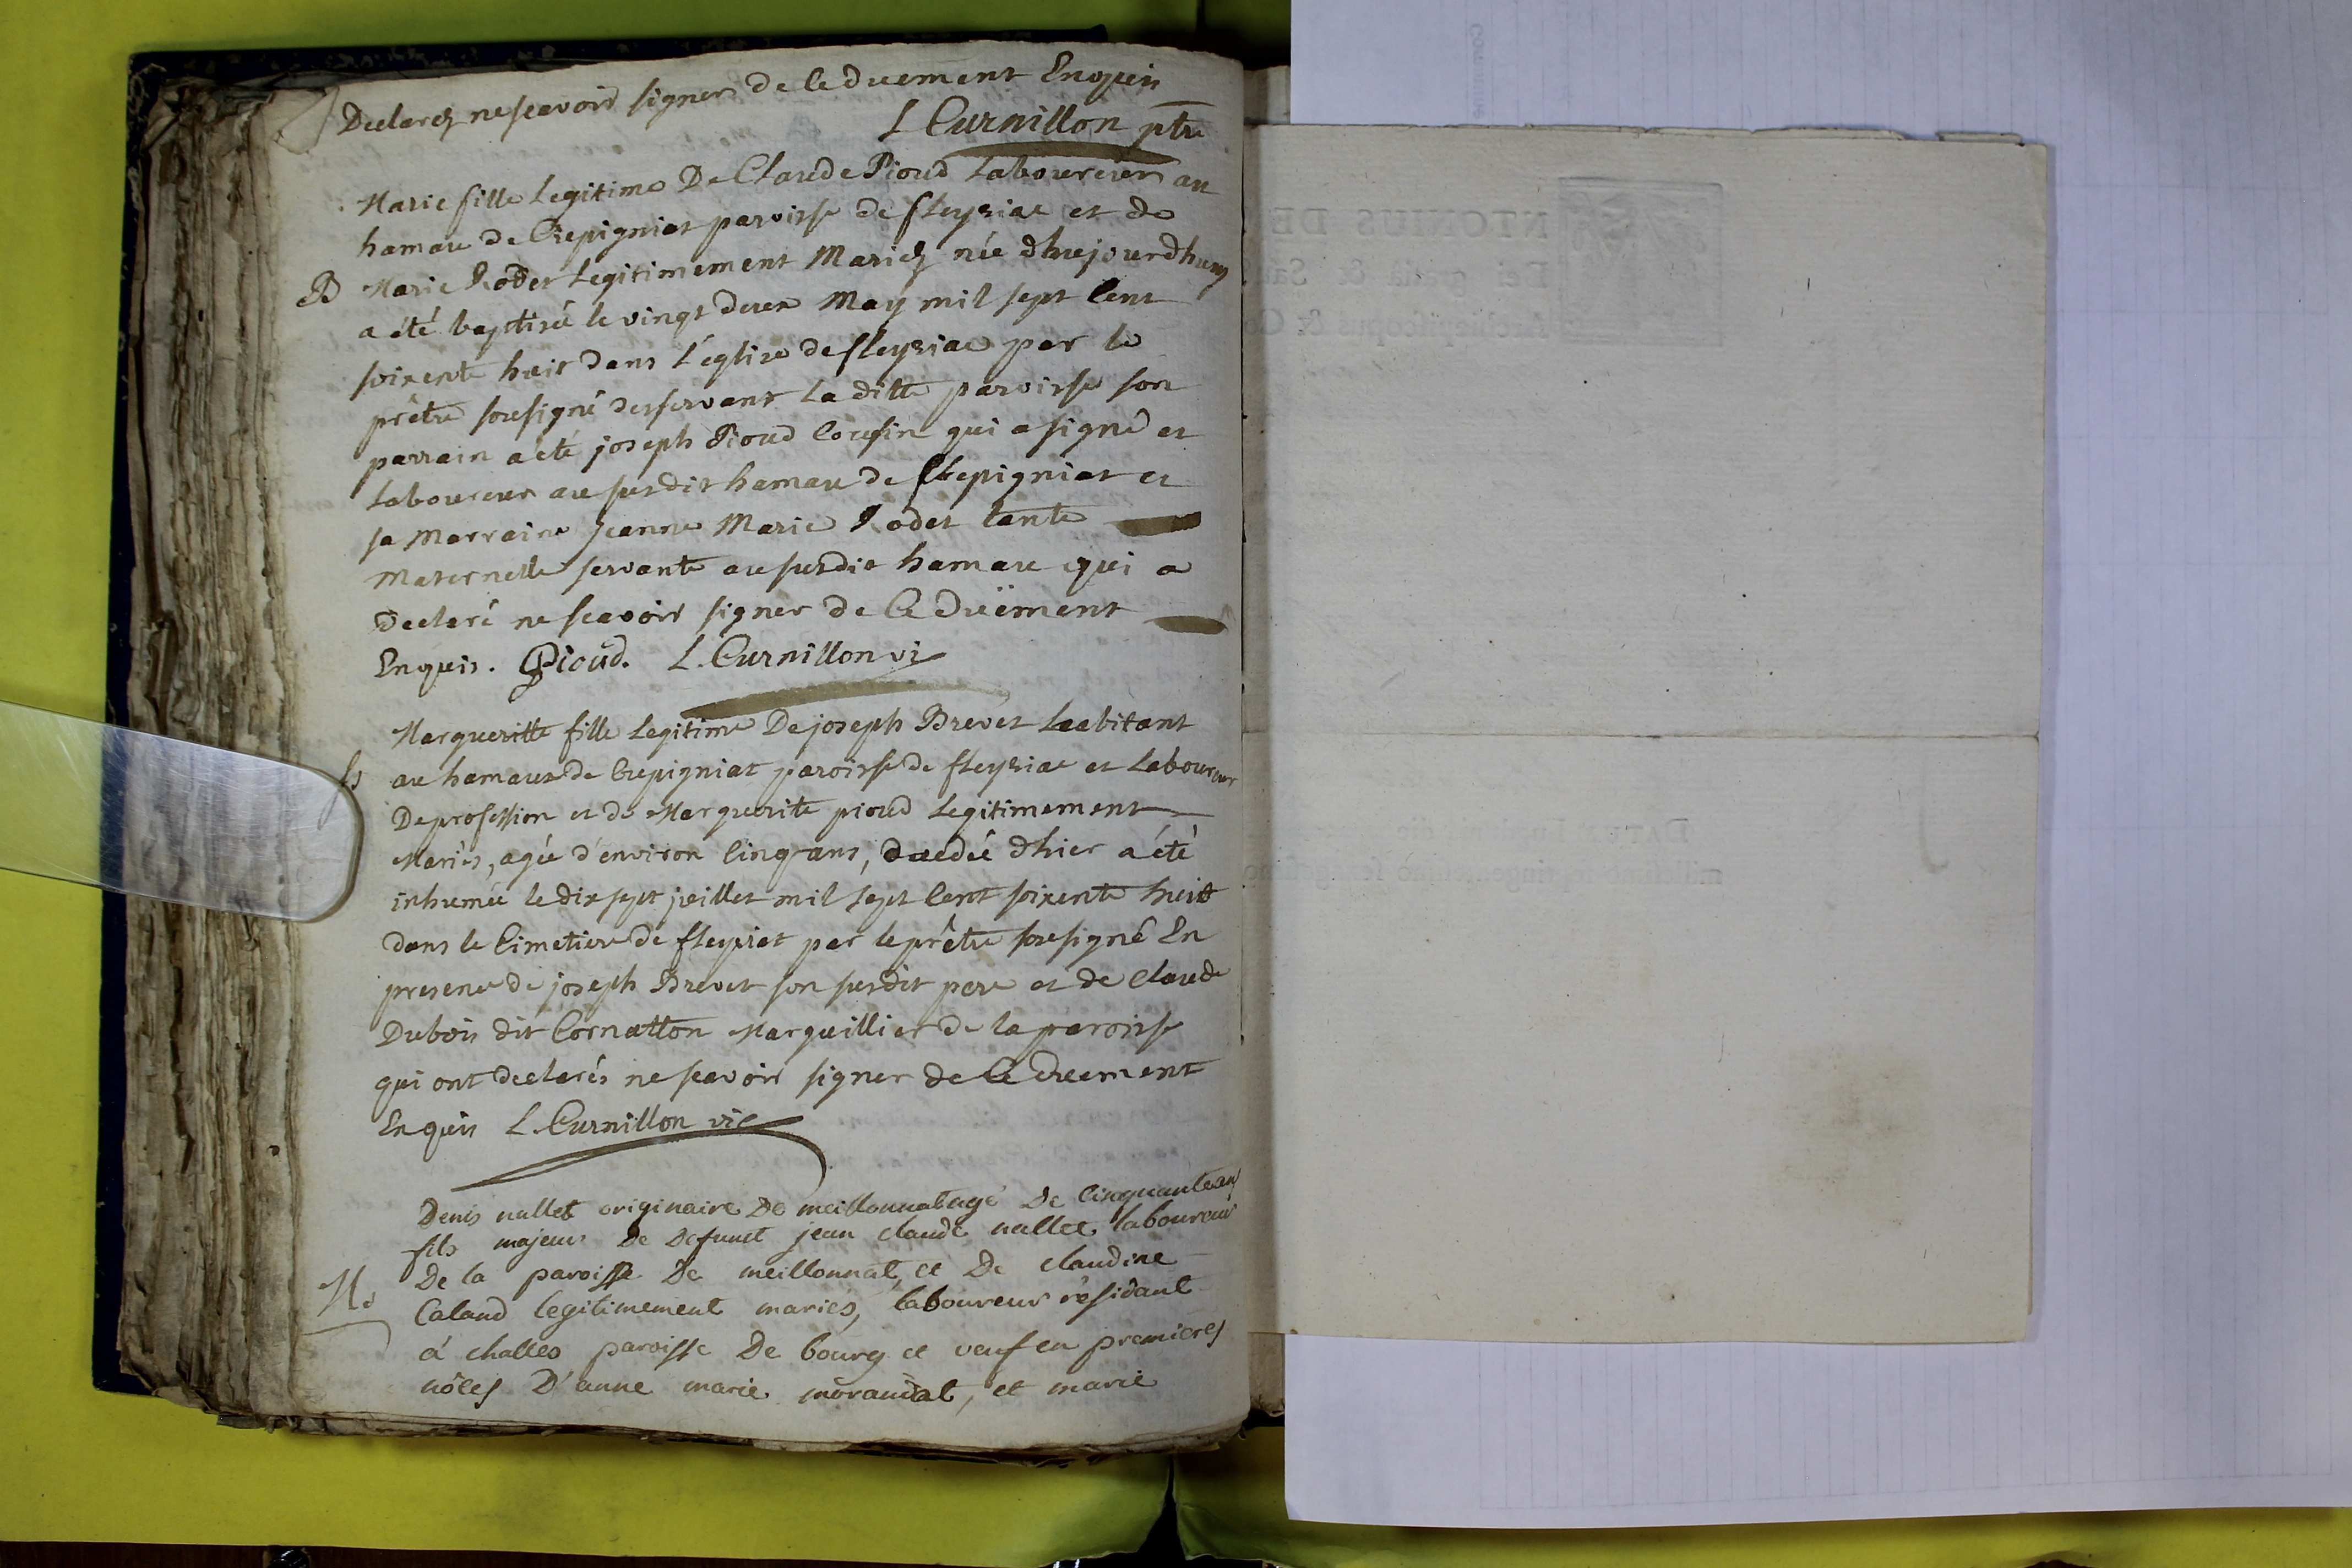 Declarez ne scavoir signer de ce duement Enquis
L Curnillon ptre
Marie fille Legitime De Claude Pioud Laboureur au
hamau de Crepigniat paroisse de fleyriac et de
B Marie Rodet Legitimement Mariez née dhuejourdhuy
a été baptisée le vingt deux May mil sept Cent
soixente huit dans l'église de fleyriac par le
prêtre sousigné desservant La ditte paroisse son
parrain a été joseph Pioud Cousin qui a signé et
Laboureur au susdit hamau de Crepigniat et
sa Marraine jeanne Marie Rodet tante
Maternelle servante au susdit hamau qui a
Declaré ne scavoir signer de Ce düement
Enquis. Pioud. L. Curnillon vi
Margueritte fille Legitime De joseph Brevet habitant
au hamaux de Crepigniat paroisse de fleyriac et Laboureur
De profession et de Marguerite pioud Legitimement
Mariés, agée d'environ Cinq ans, dhier a été
inhumée le dix sept juillet mil sept Cent soixente huit
dans le Cimetiere de fleyriat par le prêtre sousigné En
presence de joseph Brevet son susdit pere et de Claude
Dubois dit Cornatton Marguillier de la paroisse
qui ont declarés ne scavoir signer de Ce duement
Enquis L. Curnillon vic
Denis nallet originaire De meillonnat agé De Cinquante an
fils majeur De Defunct jean claude nallet laboureur
M. De la paroisse De meillonnat, et De claudine
Caland legitimement mariés, laboureur résidant
á challes paroisse De bourg et veuf en premieres
nôces D'anne marie morandat, et marie
NTONIUS DE
Dei gratiâ & Sa
Archiepiscopus & Co